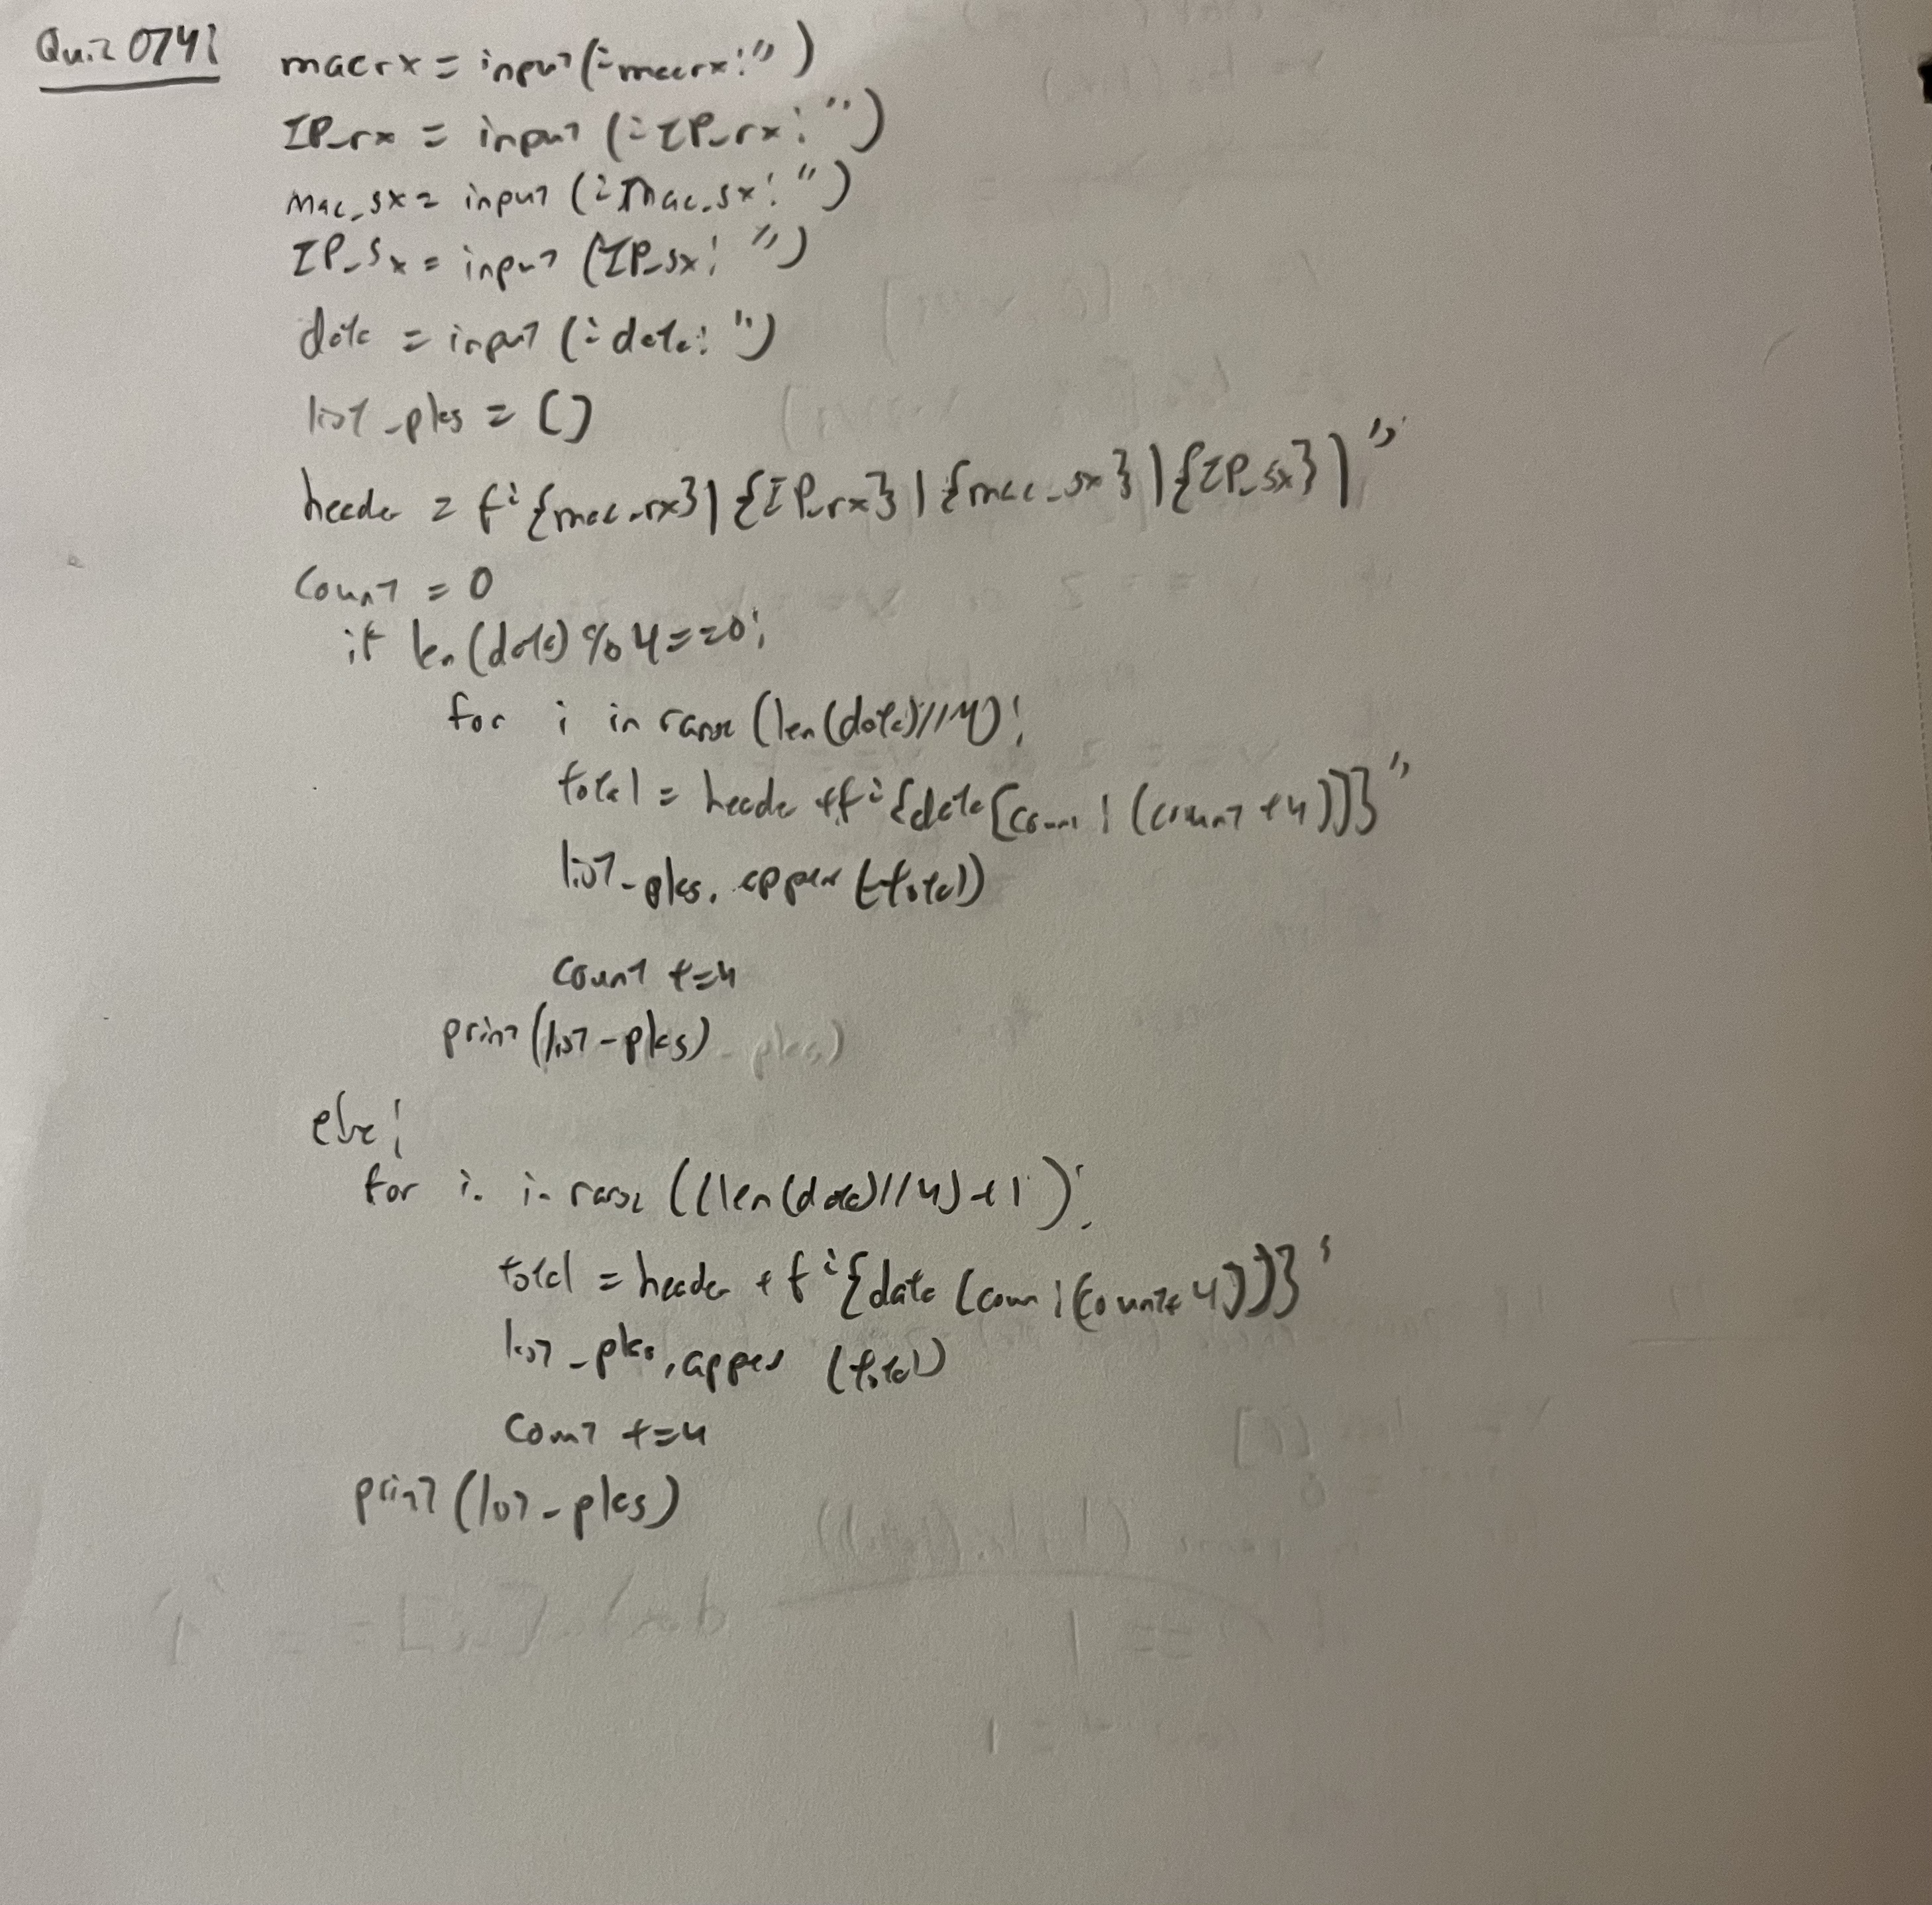 Quiz 074:
macrx = input("macrx:")
IP_rx = input ("IP_rx:")
mac_sx = input ("mac_sx:")
IP_sx = input (IP_sx: ")
data = input ("data:")
list_pks = []
header = f"{mac_rx}|{IP_rx}|{mac_sx}|{IP_sx}|"
count = 0
if len(data)%4==0:
for i in range (len(data)//4):
total = header +f"{data[count:(count+4)]}"
list_pks.append(total)
count +=4
print(list-pks)
else:
for i in range ((len(data)//4)+1):
total = header + f"{data[count:(count+4)]}"
list_pks.append (total)
count +=4
print(list-pks)